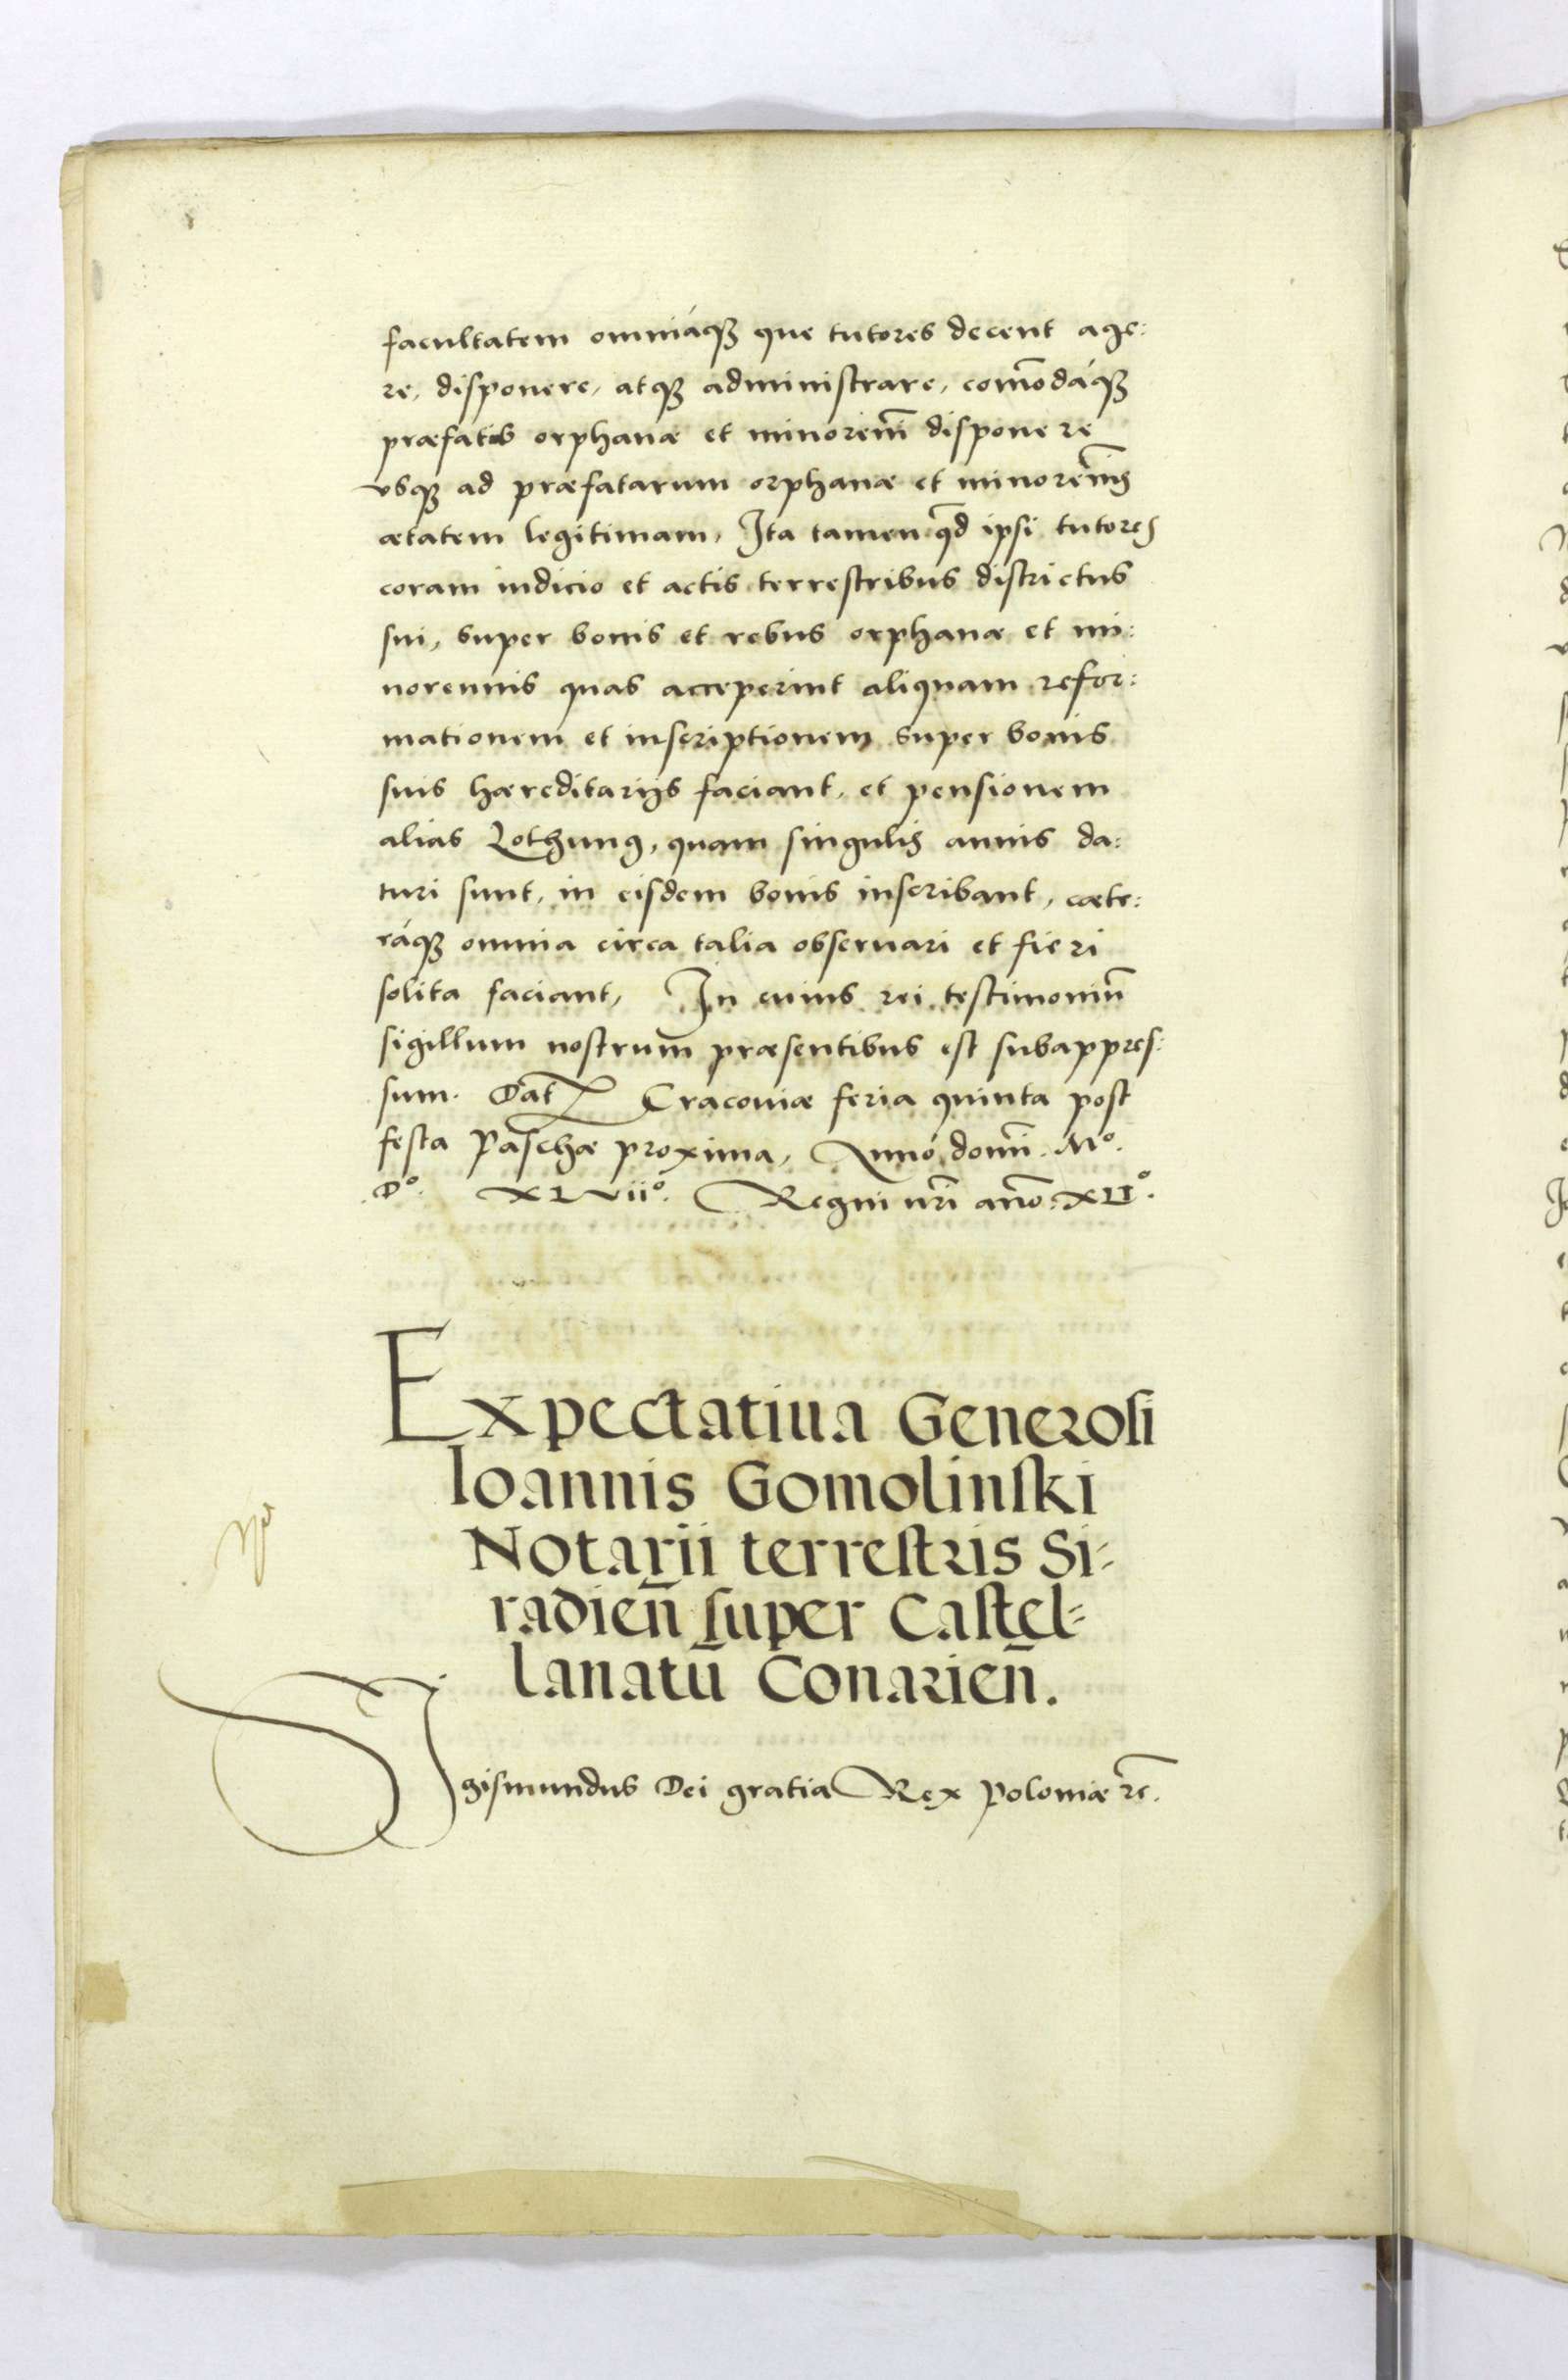 facultatem omniáq3 que tutores decent age:
re, disponere, atq3 administrare, com̄odáq3
præfatis orphanæ et minoren̄i disponere
vsq3 ad præfatarum orphanæ et minoren̄is
ætatem legitimam, Ita tamen qd̄ ipsi tutores
coram iudicio et actis terrestribus districtus
sui, super bonis et rebus orphanæ et mi:
norennis quas acceperint aliquam refor:
mationem et inscriptionem super bonis
suis hæreditarijs faciant, et pensionem
alias Lothung, quam singulis annis da:
turi sunt, in eisdem bonis inscribant, cæte:
ráq3 omnia circa talia obseruari et fieri
solita faciant, In cuius rei testimoniū
sigillum nostrum præsentibus est subappres:
sum. Dat Cracouiæ feria quinta post
festa Paschæ proxima, Anno domī. Mº.
Dº. XLviiº. Regni nrī an̄o. XLIº.
Expectatiua Generosi
Ioannis Gomolinski
Notarii terrestris Si-
radien̄ super Castel-
lanatū Conarien̄.
Sigismundus Dei gratia Rex Poloniæ rc̄.